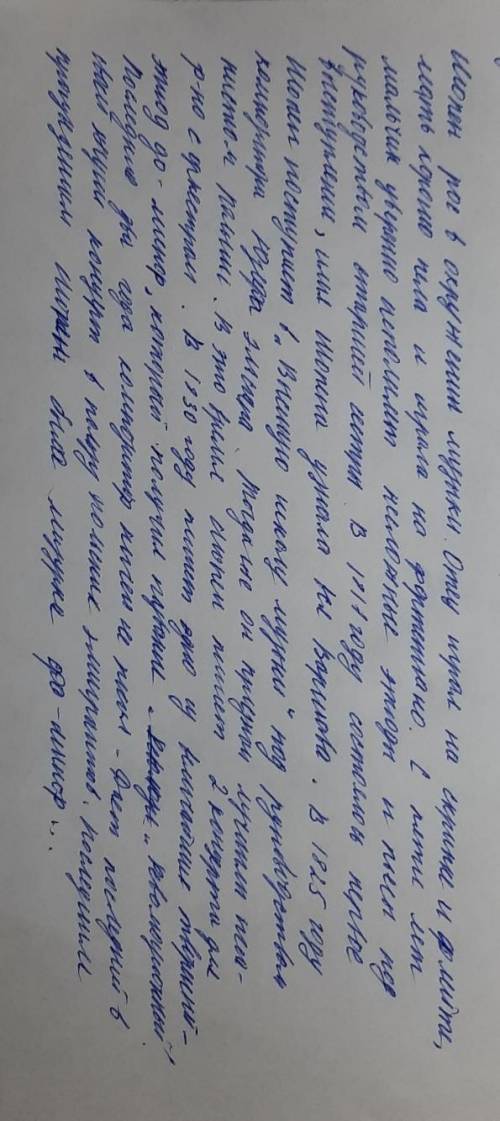 Шопен рос в окружении музыки. Отец играл на скрипке и флейте,
мать хорошо пела и играла на фортепиано. С пяти лет
мальчик уверенно исполняет несложные этюды и пьесы под
руководством старшей сестры. В 1818 году состоялось первое
выступление, имя Шопена узнала вся Варшава. В 1825 году
Шопен поступит в „Высшую школу музыки" под руководством
композитора Юзефа Эльснера. Тогда же он признан лучшим пиа-
нистом Польши. В это время Шопен пишет 2 концерта для
ф-но с оркестром. В 1830 году пишет одно из величайших творений -
этюд до-минор, который получил название „Революционный",
Последние два года композитор почти не писал. Дает последний в
своей жизни концерт в пользу польских эмигрантов. Последним
произведением Шопена была мазурка фа-минор...